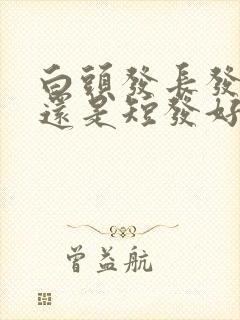 白頭發長發
還是短發好
曾益航